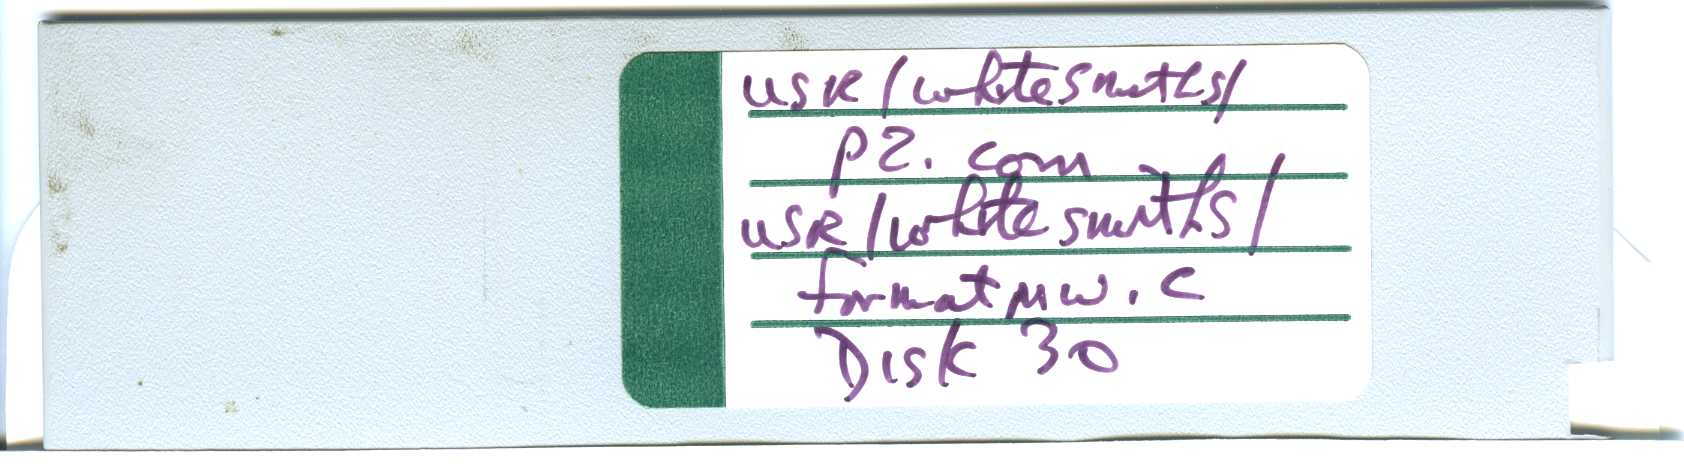 usr/whitesmiths/
p2.com
usr/whitesmiths/
formatmw.c
Disk 30